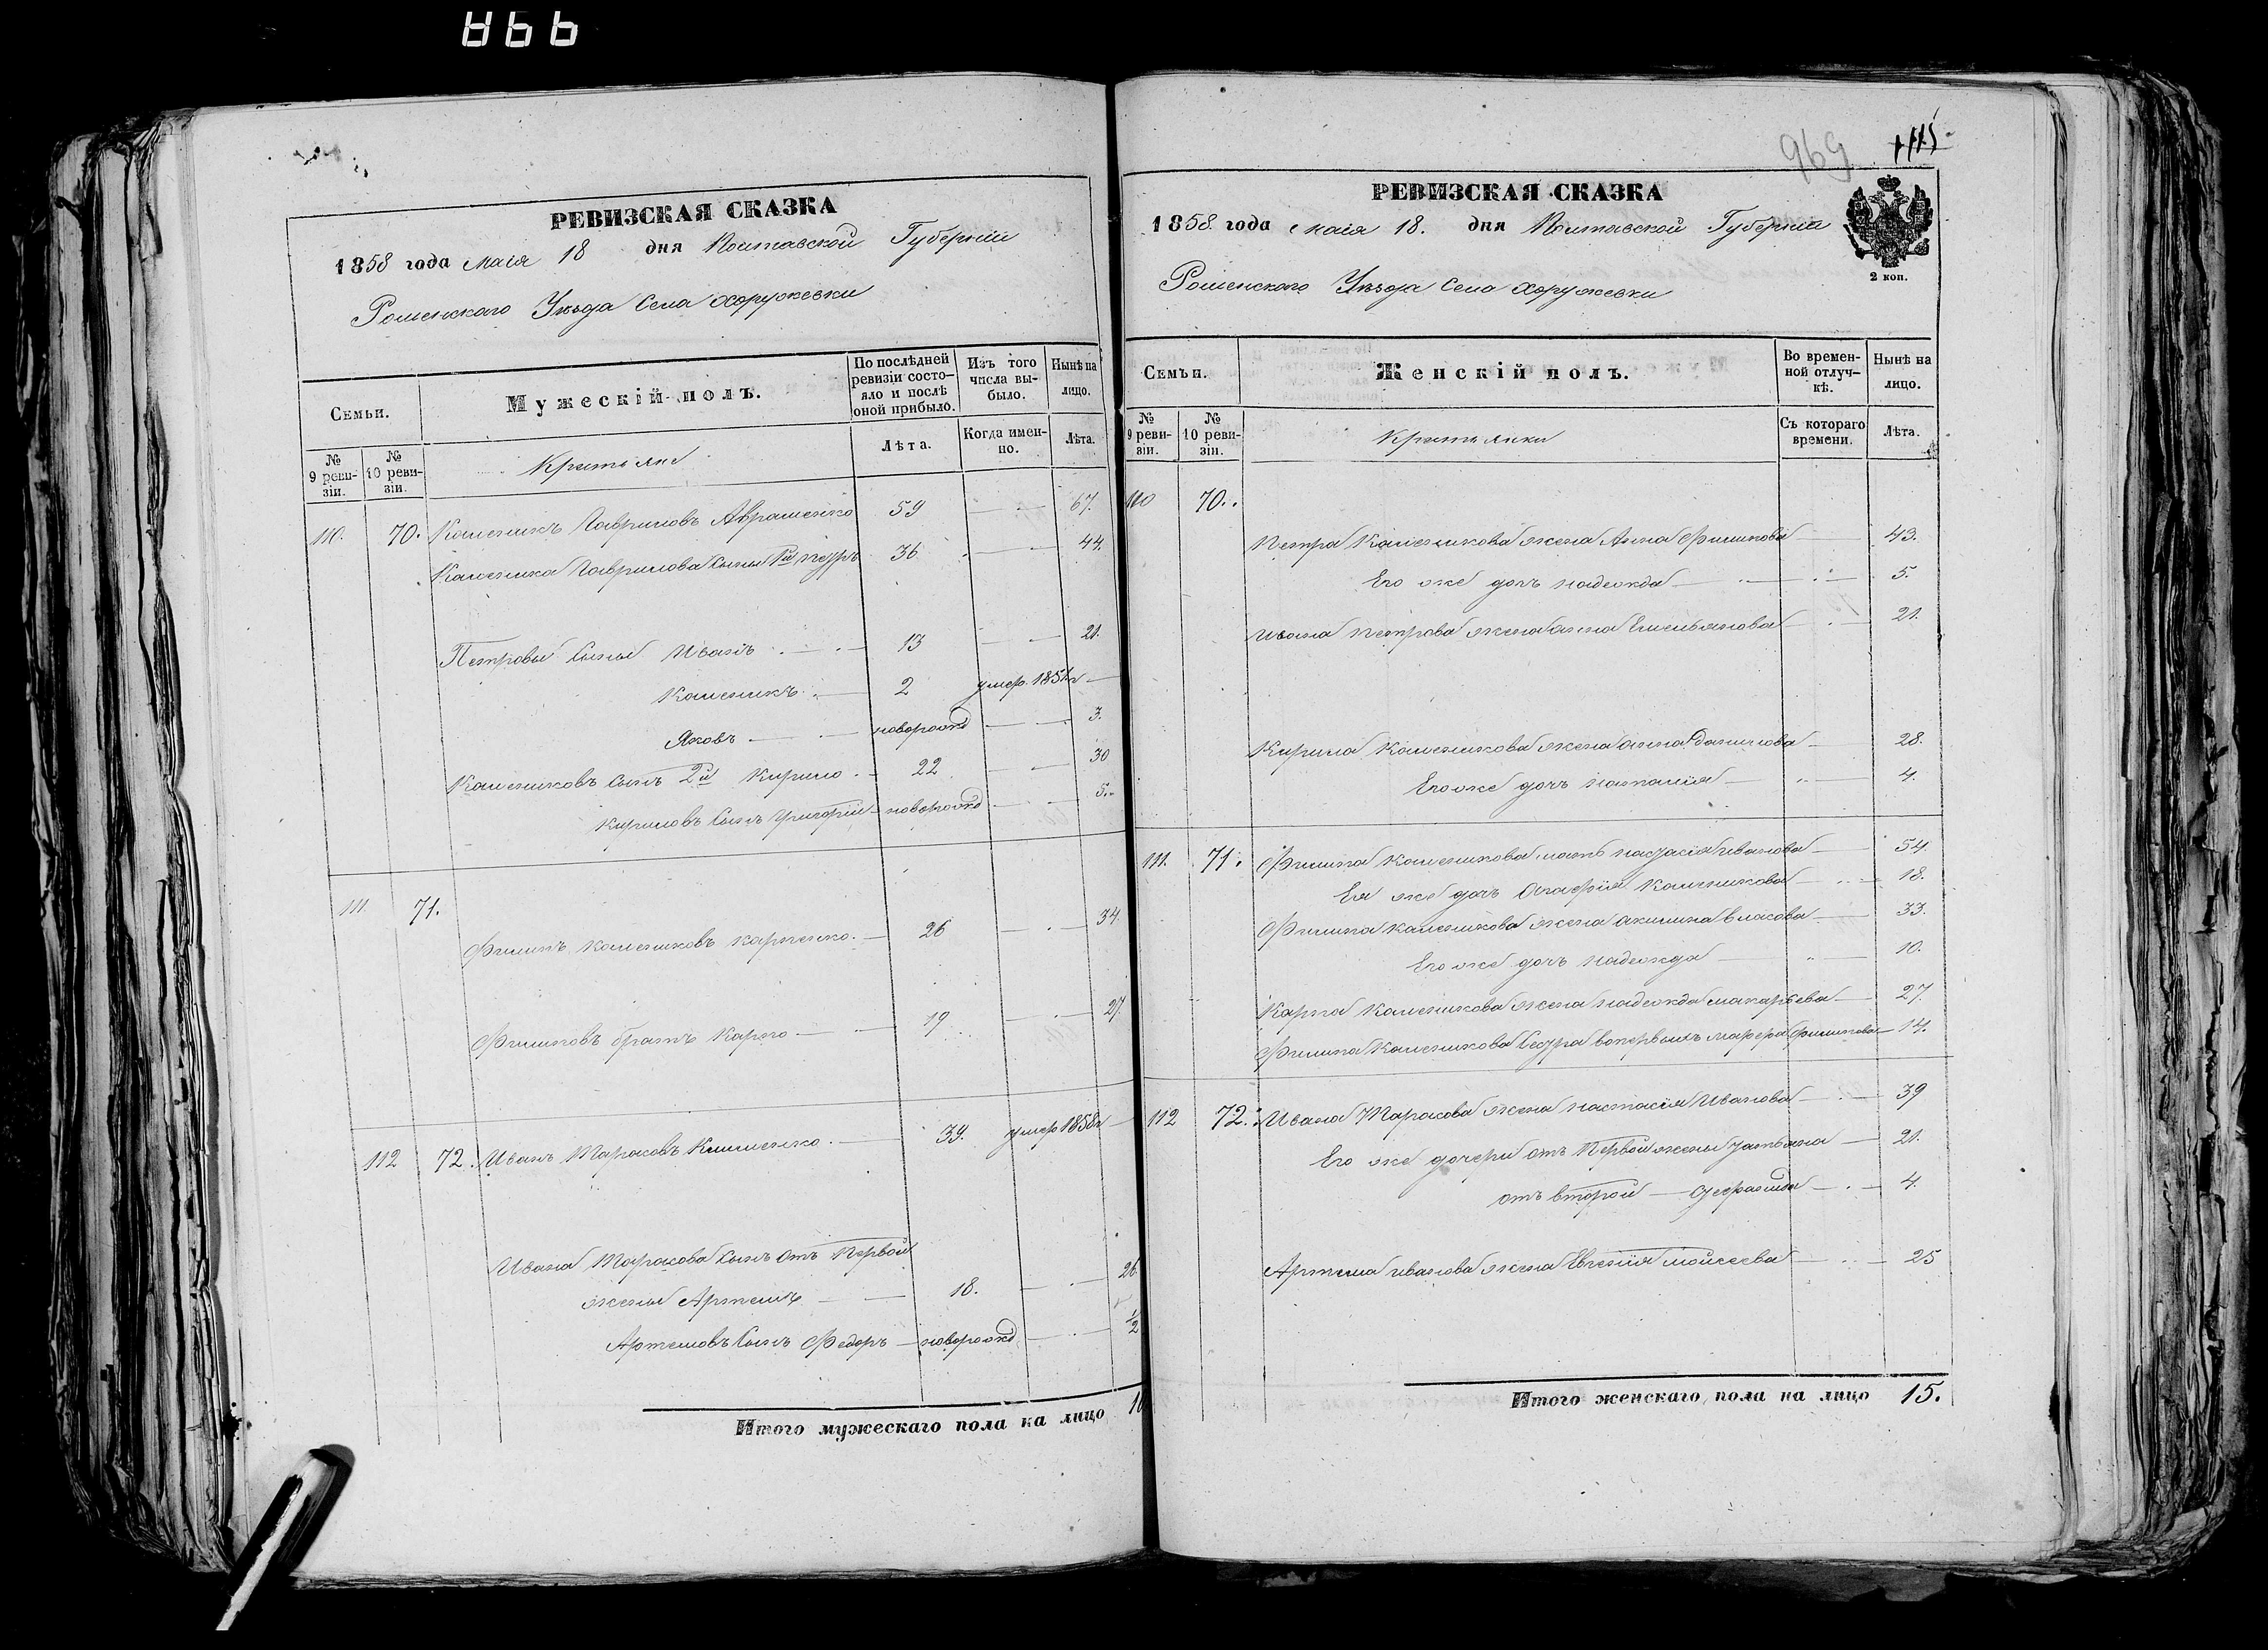 966
РЕВИЗСКАЯ СКАЗКА
1858 года маія 18 дня Полтавской Губерніи
Роменскаго Уѣзда Села Хоружевки
Семьи.
Мужескій полъ.
По послѣдней ревизіи состояло и послѣ оной прибыло.
Изъ того числа выбыло.
Нынѣ на лицо.
№ 9 ревизіи.
№ 10 ревизіи.
Крестьяне
Лѣта.
Когда именно.
Лѣта.
110. 70. Каленикъ Гавриловъ Авраменко 59 67.
Каленика Гаврилова сыны 1й Петръ 36 44.
Петровы сыны Иванъ 13 21.
Каленикъ 2 умер. 1851г
Яковъ новорожд 3.
Калениковъ сынъ 2й Кирило 22 30
Кириловъ сынъ Григорій новорожд 5.
111. 71.
Филипъ Калениковъ Карпенко 26 34.
Филиповъ братъ Карпо 19 27
112 72. Иванъ Тарасовъ Клименко 39. умер 1858г
Ивана Тарасова сынъ отъ первой
жены Артемъ 18. 26
Артемовъ сынъ Федоръ новорожд 1/2
Итого мужескаго пола на лицо 10
969 1115
РЕВИЗСКАЯ СКАЗКА
1858 года маія 18. дня Полтавской Губерніи
2 коп.
Роменскаго Уѣзда Села Хоружевки
Семьи.
Женскій полъ.
Во временной отлучкѣ.
Нынѣ на лицо.
№ 9 ревизіи.
№ 10 ревизіи.
Крестьянки
Съ котораго времени.
Лѣта.
110 70.
Петра Каленикова жена Анна Филипова 43.
Его же дочь Надежда 5.
Ивана Петрова жена Анна Емельянова 21.
Кирила Каленикова жена Анна Данилова 28.
Его же дочь Наталія 4.
111. 71. Филипа Каленикова мать Настасія Иванова 54.
Ея же дочь Агафія Каленикова 18.
Филипа Каленикова жена Акилина Власова 33.
Его же дочь Надежда 10.
Карпа Каленикова жена Надежда Макарьева 27.
Филипа Каленикова Сестра вопервыхъ Марфа Филипова 14.
112 72. Ивана Тарасова жена Настасія Иванова 39
Его же дочери отъ первой жены Татьяна 21.
отъ второй 4.
Артема Иванова жена Евгенія Мойсеева 25
Итого женскаго пола на лицо 15.